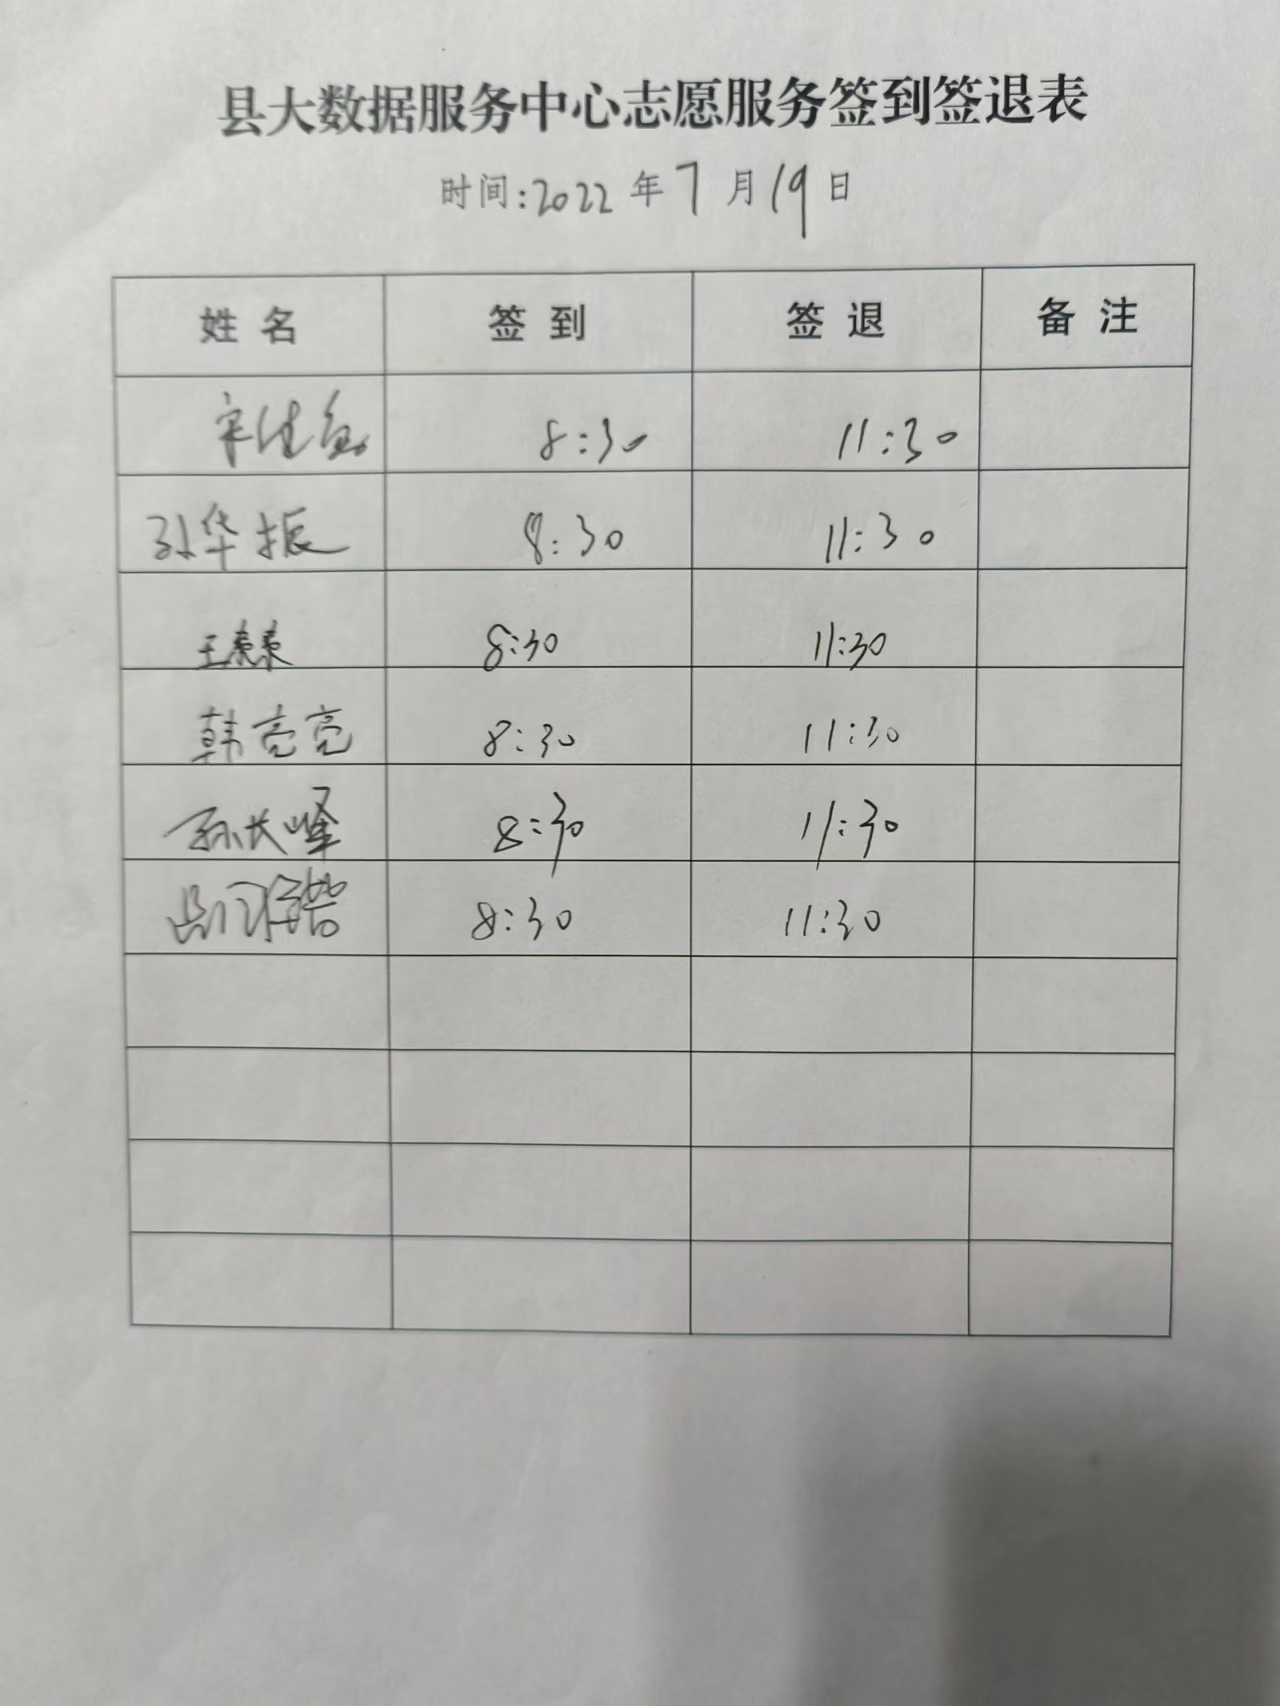 县大数据服务中心志愿服务签到签退表
时间:2022年7月19日
姓名 签到 签退 备注
8:30 11:30
孙华振 8:30 11:30
王 8:30 11:30
韩亮亮 8:30 11:30
孙长峰 8:30 11:30
8:30 11:30